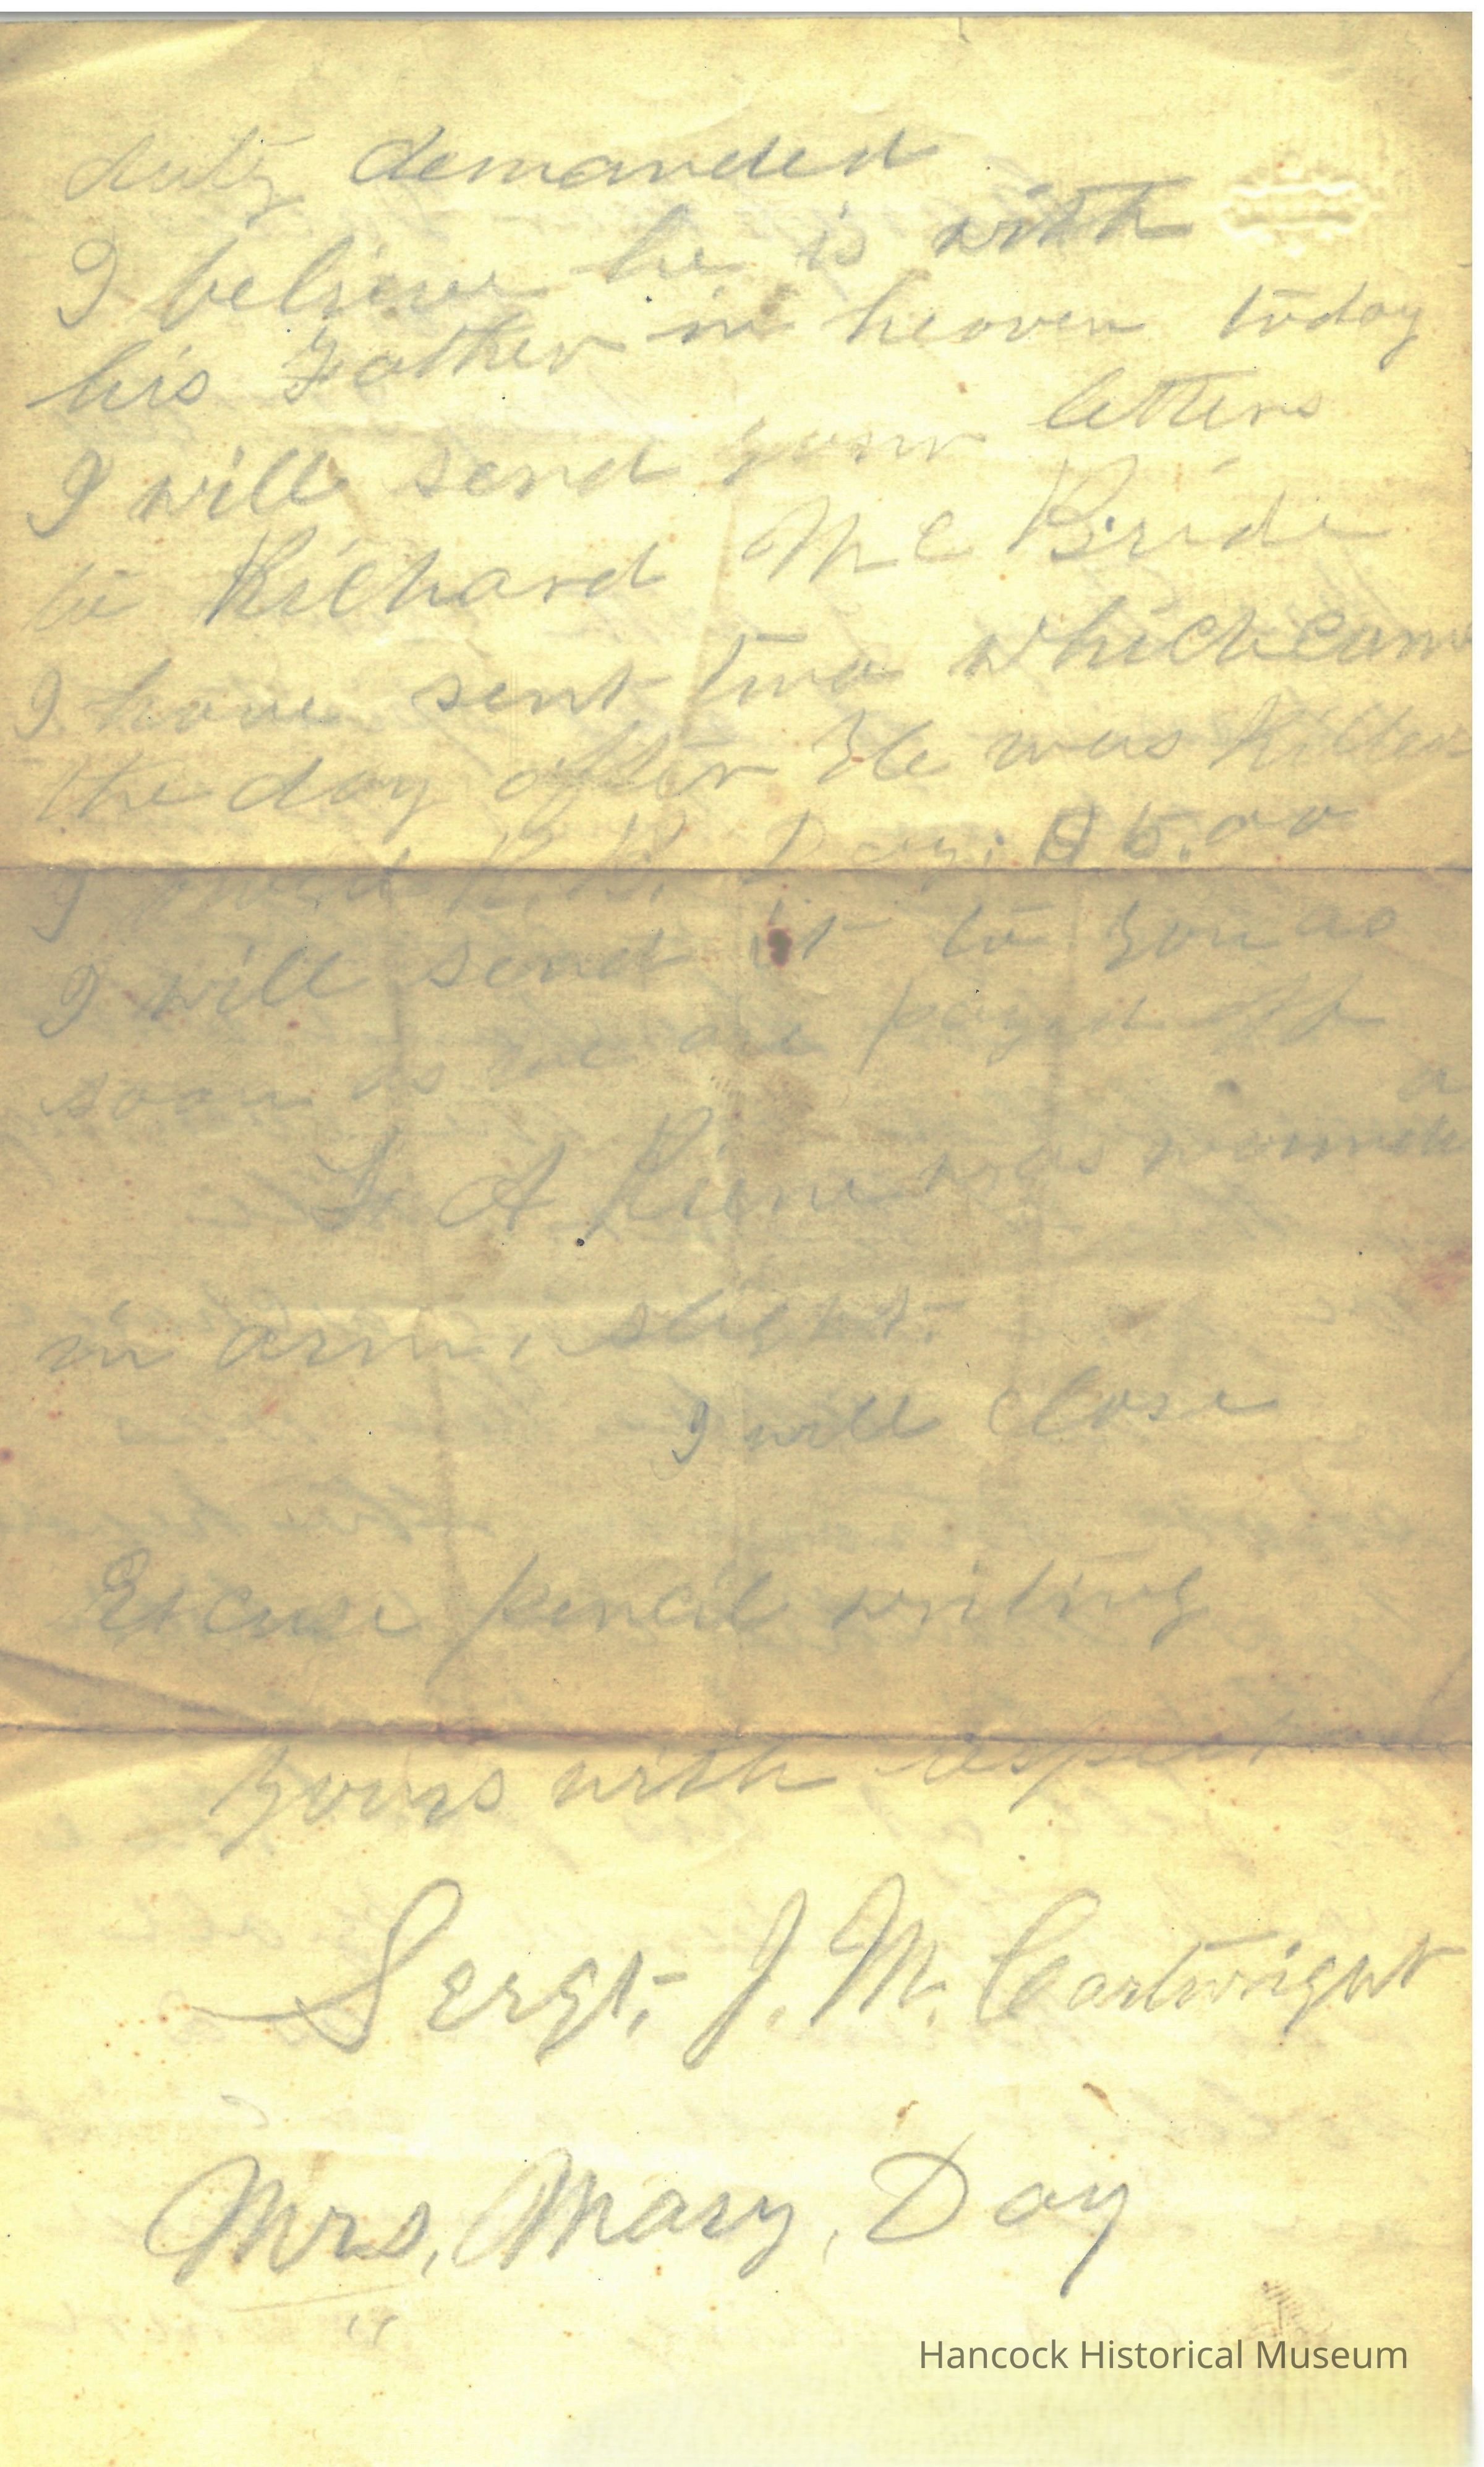 duty demanded
I believe he is with
his Father in heaven today
I will send your letters
to Richard Mc Bride
I have sent two which came
the day after He was killed
I owed R. R. Day. $5.00
I will send it to you as
soon as we are payed off
L. A. was wounded
in arm, slight.
I will close
Excuse pencil writing
Yours with respect
Sergt. J. M. Cartwright
Mrs, Mary, Day
Hancock Historical Museum